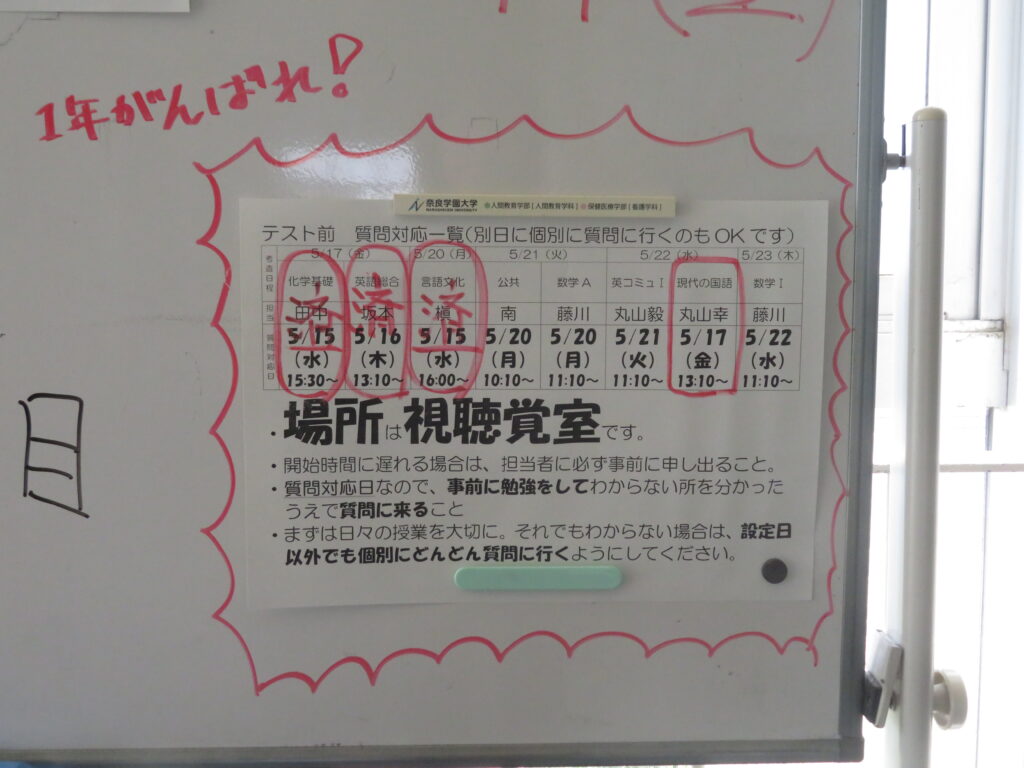 1年がんばれ!
奈良学園大学 ◎人間教育学部[人間教育学科] ◎保健医療学部[看護学科]
NARAGAKUEN UNIVERSITY
テスト前 質問対応一覧(別日に個別に質問に行くのもOKです)
考査日程 5/17(金) 5/20(月) 5/21(火) 5/22(水) 5/23(木)
化学基礎 英語総合 言語文化 公共 数学A 英コミュⅠ 現代の国語 数学Ⅰ
済 済 済
担当 田中 坂本 槇 南 藤川 丸山毅 丸山幸 藤川
質問対応日 5/15 5/16 5/15 5/20 5/20 5/21 5/17 5/22
(水) (木) (水) (月) (月) (火) (金) (水)
15:30~ 13:10~ 16:00~ 10:10~ 11:10~ 11:10~ 13:10~ 11:10~
・場所は視聴覚室です。
・開始時間に遅れる場合は、担当者に必ず事前に申し出ること。
・質問対応日なので、事前に勉強をしてわからない所を分かった
うえで質問に来ること
・まずは日々の授業を大切に。それでもわからない場合は、設定日
以外でも個別にどんどん質問に行くようにしてください。
目